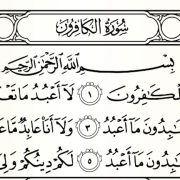 سُورَةُ الكَافِرُونَ
بِسْمِ اللَّهِ الرَّحْمَٰنِ الرَّحِيمِ
لْكَٰفِرُونَ ١ لَآ أَعْبُدُ مَا تَعْ
ـٰبِدُونَ مَآ أَعْبُدُ ٣ وَلَآ أَنَا۠ عَابِدٌ مَّا عَ
ـٰبِدُونَ مَآ أَعْبُدُ ٥ لَكُمْ دِينُكُمْ وَلِيَ